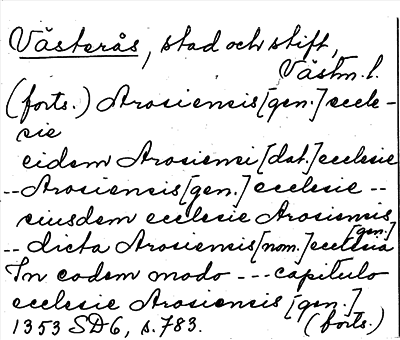 Västerås, stad och stift,
Västm. l.
(forts.) Arosiensis [gen.] eccle-
sie
eidem Arosiensi [dat.] ecclesie
-- Arosiensis [gen.] ecclesie --
eiusdem ecclesie Arosiensis
[gen.]
-- dicta Arosiensis [nom.] ecclesia
In eodem modo --- capitulo
ecclesie Arosiensis [gen.]
1353 SD6, s. 783. (forts.)